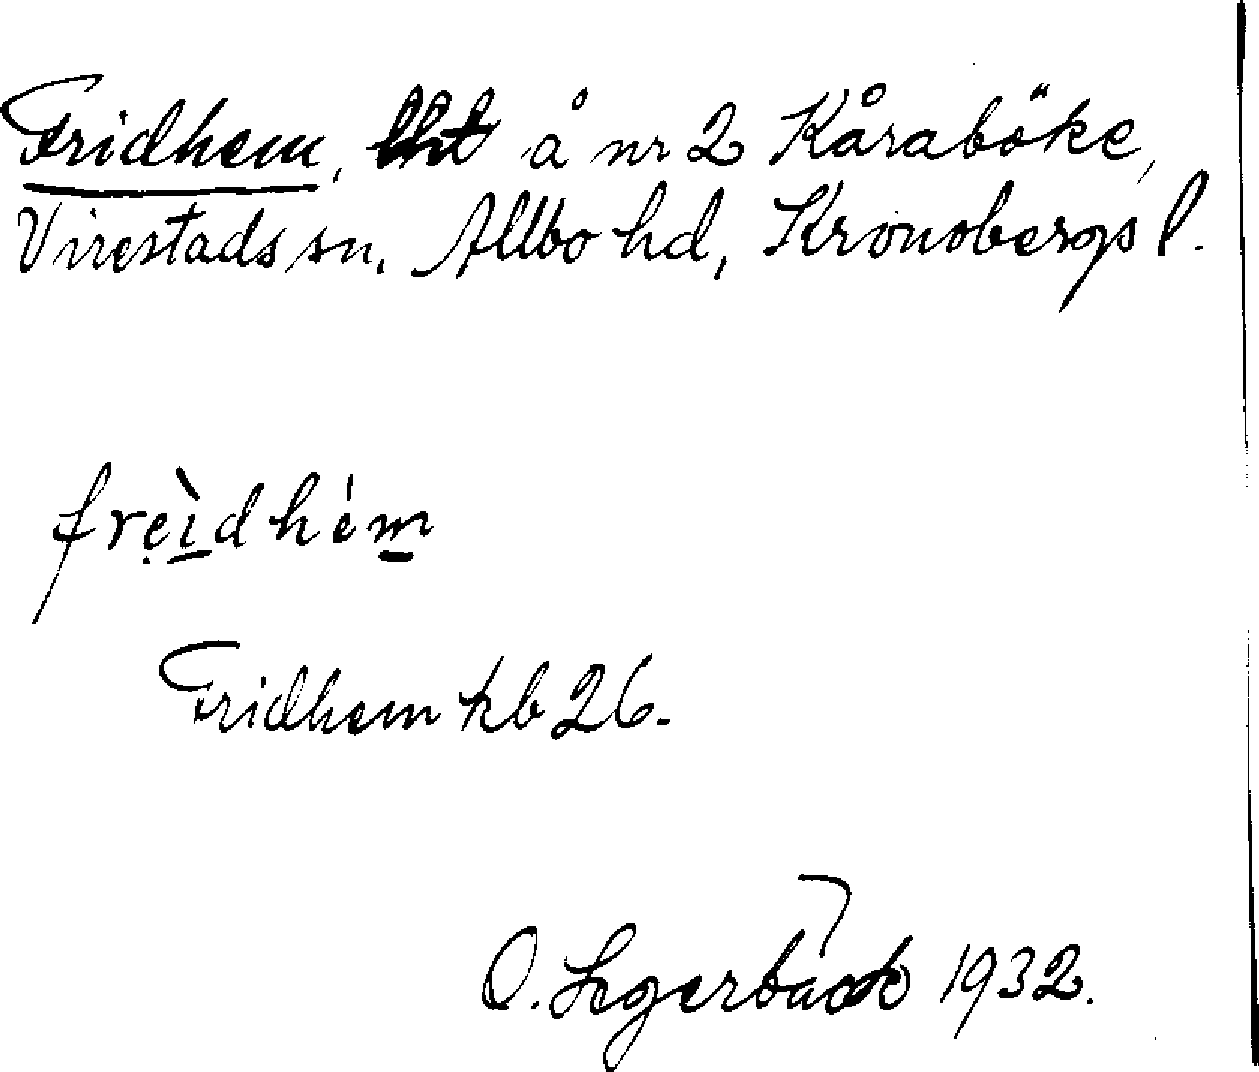 Fridhem, lht å nr 2 Kåraböke,
Virestads sn, Allbo hd, Kronobergs l.
frẹìdhém
Fridhem kb 26.
O. Segerbäck 1932.